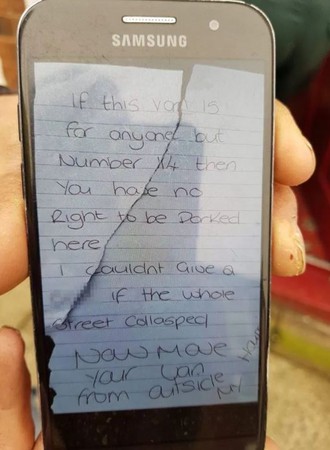 SAMSUNG
If this van is
for anyone but
Number 14 then
You have no
Right to be Parked
here
I couldnt Give a
if the whole
Street Collapsed
Now Move
your Van
from outside
MY
House